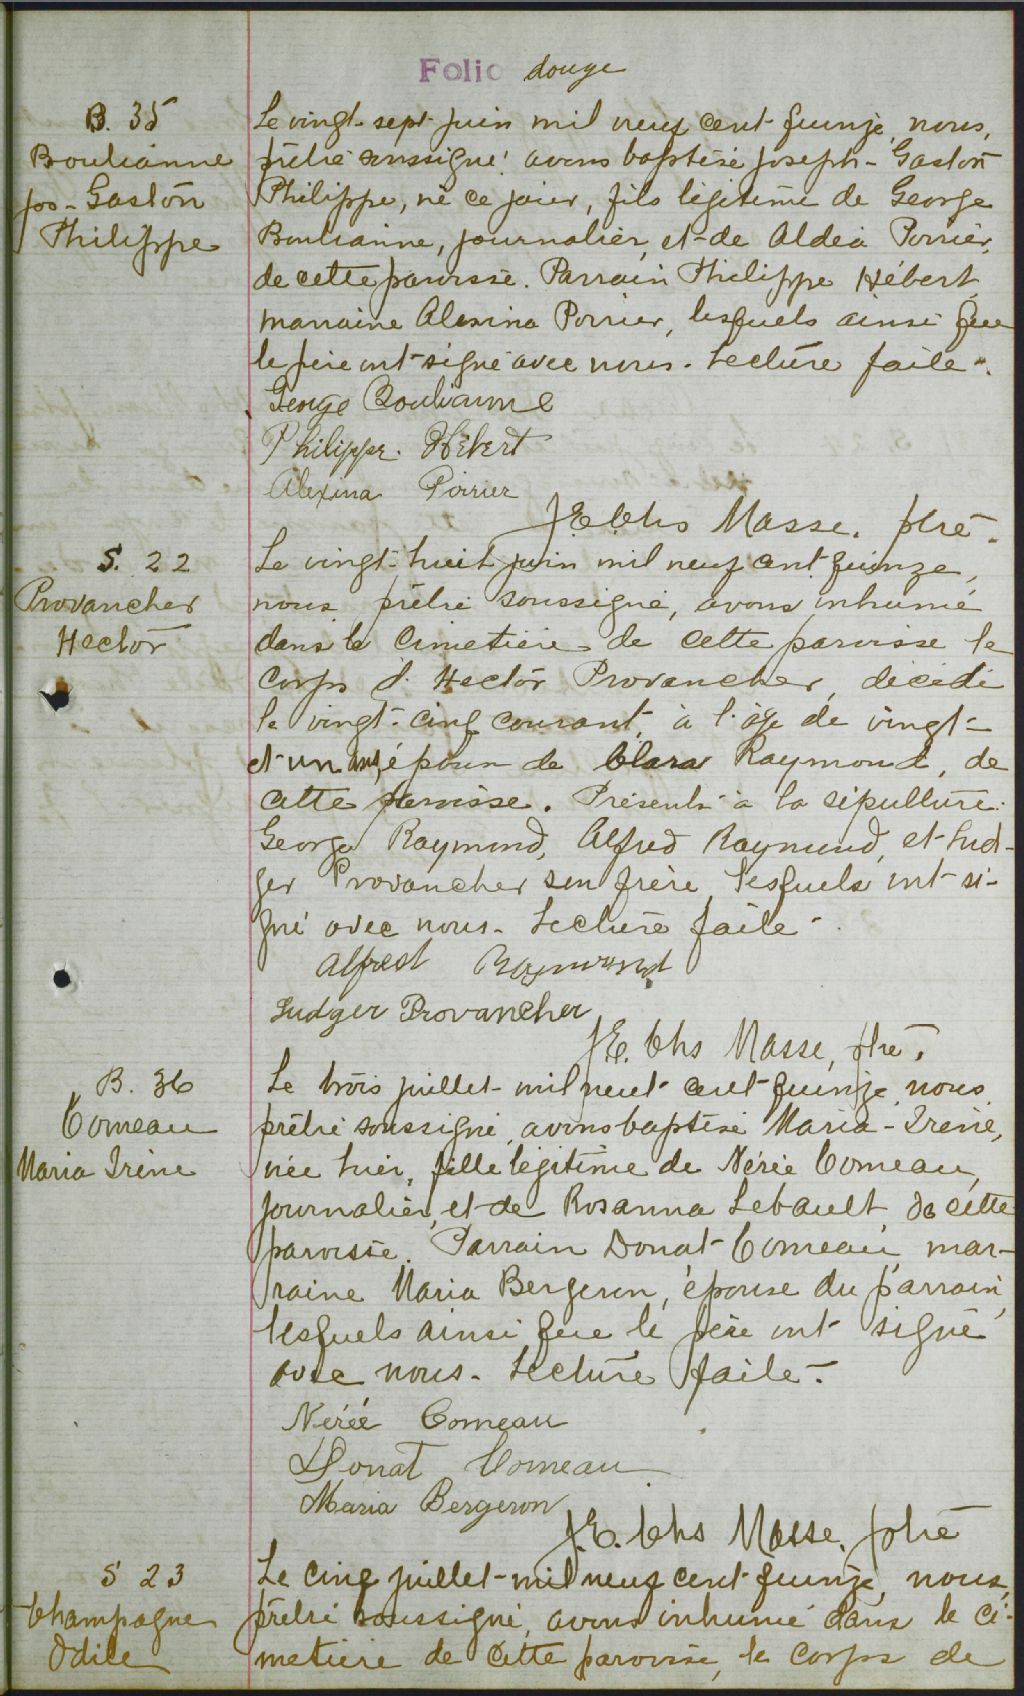 Folio douze
B. 35
Boulianne
Jos-Gaston
Philippe
Le vingt-sept juin mil neuf cent quinze, nous,
prêtre soussigné avons baptisé Joseph-Gaston
Philippe, né ce jour, fils légitime de George
Boulianne, journalier, et de Aldéa Poirier,
de cette paroisse. Parrain Philippe Hébert,
marraine Alexina Poirier, lesquels ainsi que
le père ont signé avec nous. Lecture faite.
George Boulianne
Philippe Hébert
Alexina Poirier
J. E. Chs Masse, ptre.
S. 22
Provancher
Hector
Le vingt-huit juin mil neuf cent quinze,
nous prêtre soussigné, avons inhumé
dans le cimetière de cette paroisse le
corps d'Hector Provancher, décédé
le vingt-cinq courant, à l'âge de vingt-
et-un ans, époux de Clara Raymond, de
cette paroisse. Présents à la sépulture
George Raymond, Alfred Raymond, et Lud-
ger Provancher son frère, lesquels ont si-
gné avec nous. Lecture faite.
Alfred Raymond
Ludger Provancher
J. E. Chs Masse, ptre.
B. 36
Comeau
Maria Irène
Le trois juillet mil neuf cent quinze, nous
prêtre soussigné, avons baptisé Maria-Irène,
née hier, fille légitime de Nérée Comeau,
journalier, et de Rosanna Lebault, de cette
paroisse. Parrain Donat Comeau, mar-
raine Maria Bergeron, épouse du parrain,
lesquels ainsi que le père ont signé
avec nous. Lecture faite.
Nérée Comeau
Donat Comeau
Maria Bergeron
J. E. Chs Masse, ptre
S 23
Champagne
Odile
Le cinq juillet mil neuf cent quinze, nous,
prêtre soussigné, avons inhumé dans le ci-
metière de cette paroisse, le corps de